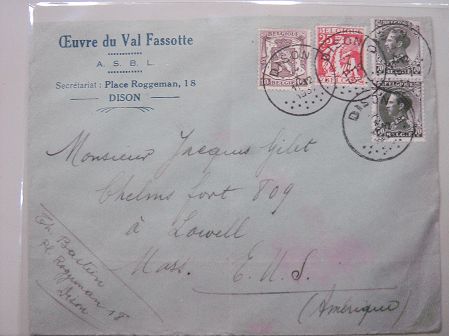 Œuvre du Val Fassotte
A. S. B. L.
Secrétariat : Place Roggeman, 18
DISON
BELGIQUE
DISON
DISON
DISON
Monsieur Jacques Gilet
Chelmsfort 809
à Lowell
Mass. E. U. S.
(Amérique)
Pl. Roggeman 18
Dison